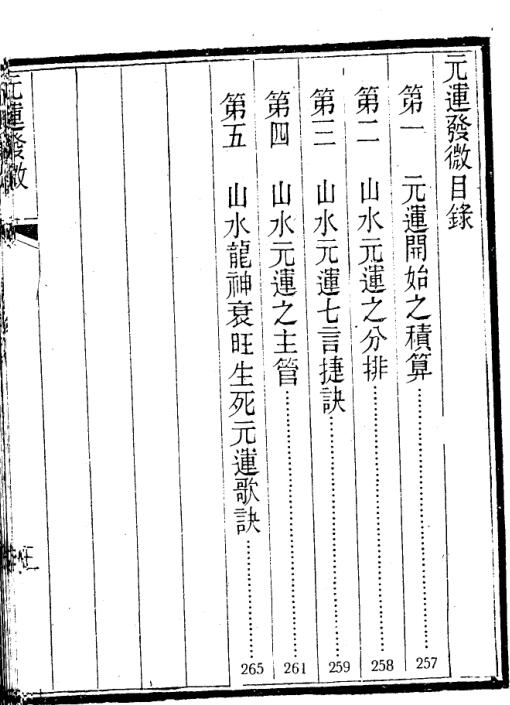 元運發微目錄
第一　元運開始之積算……257
第二　山水元運之分排……258
第三　山水元運七言捷訣……259
第四　山水元運之主管……261
第五　山水龍神衰旺生死元運歌訣……265
元運發微